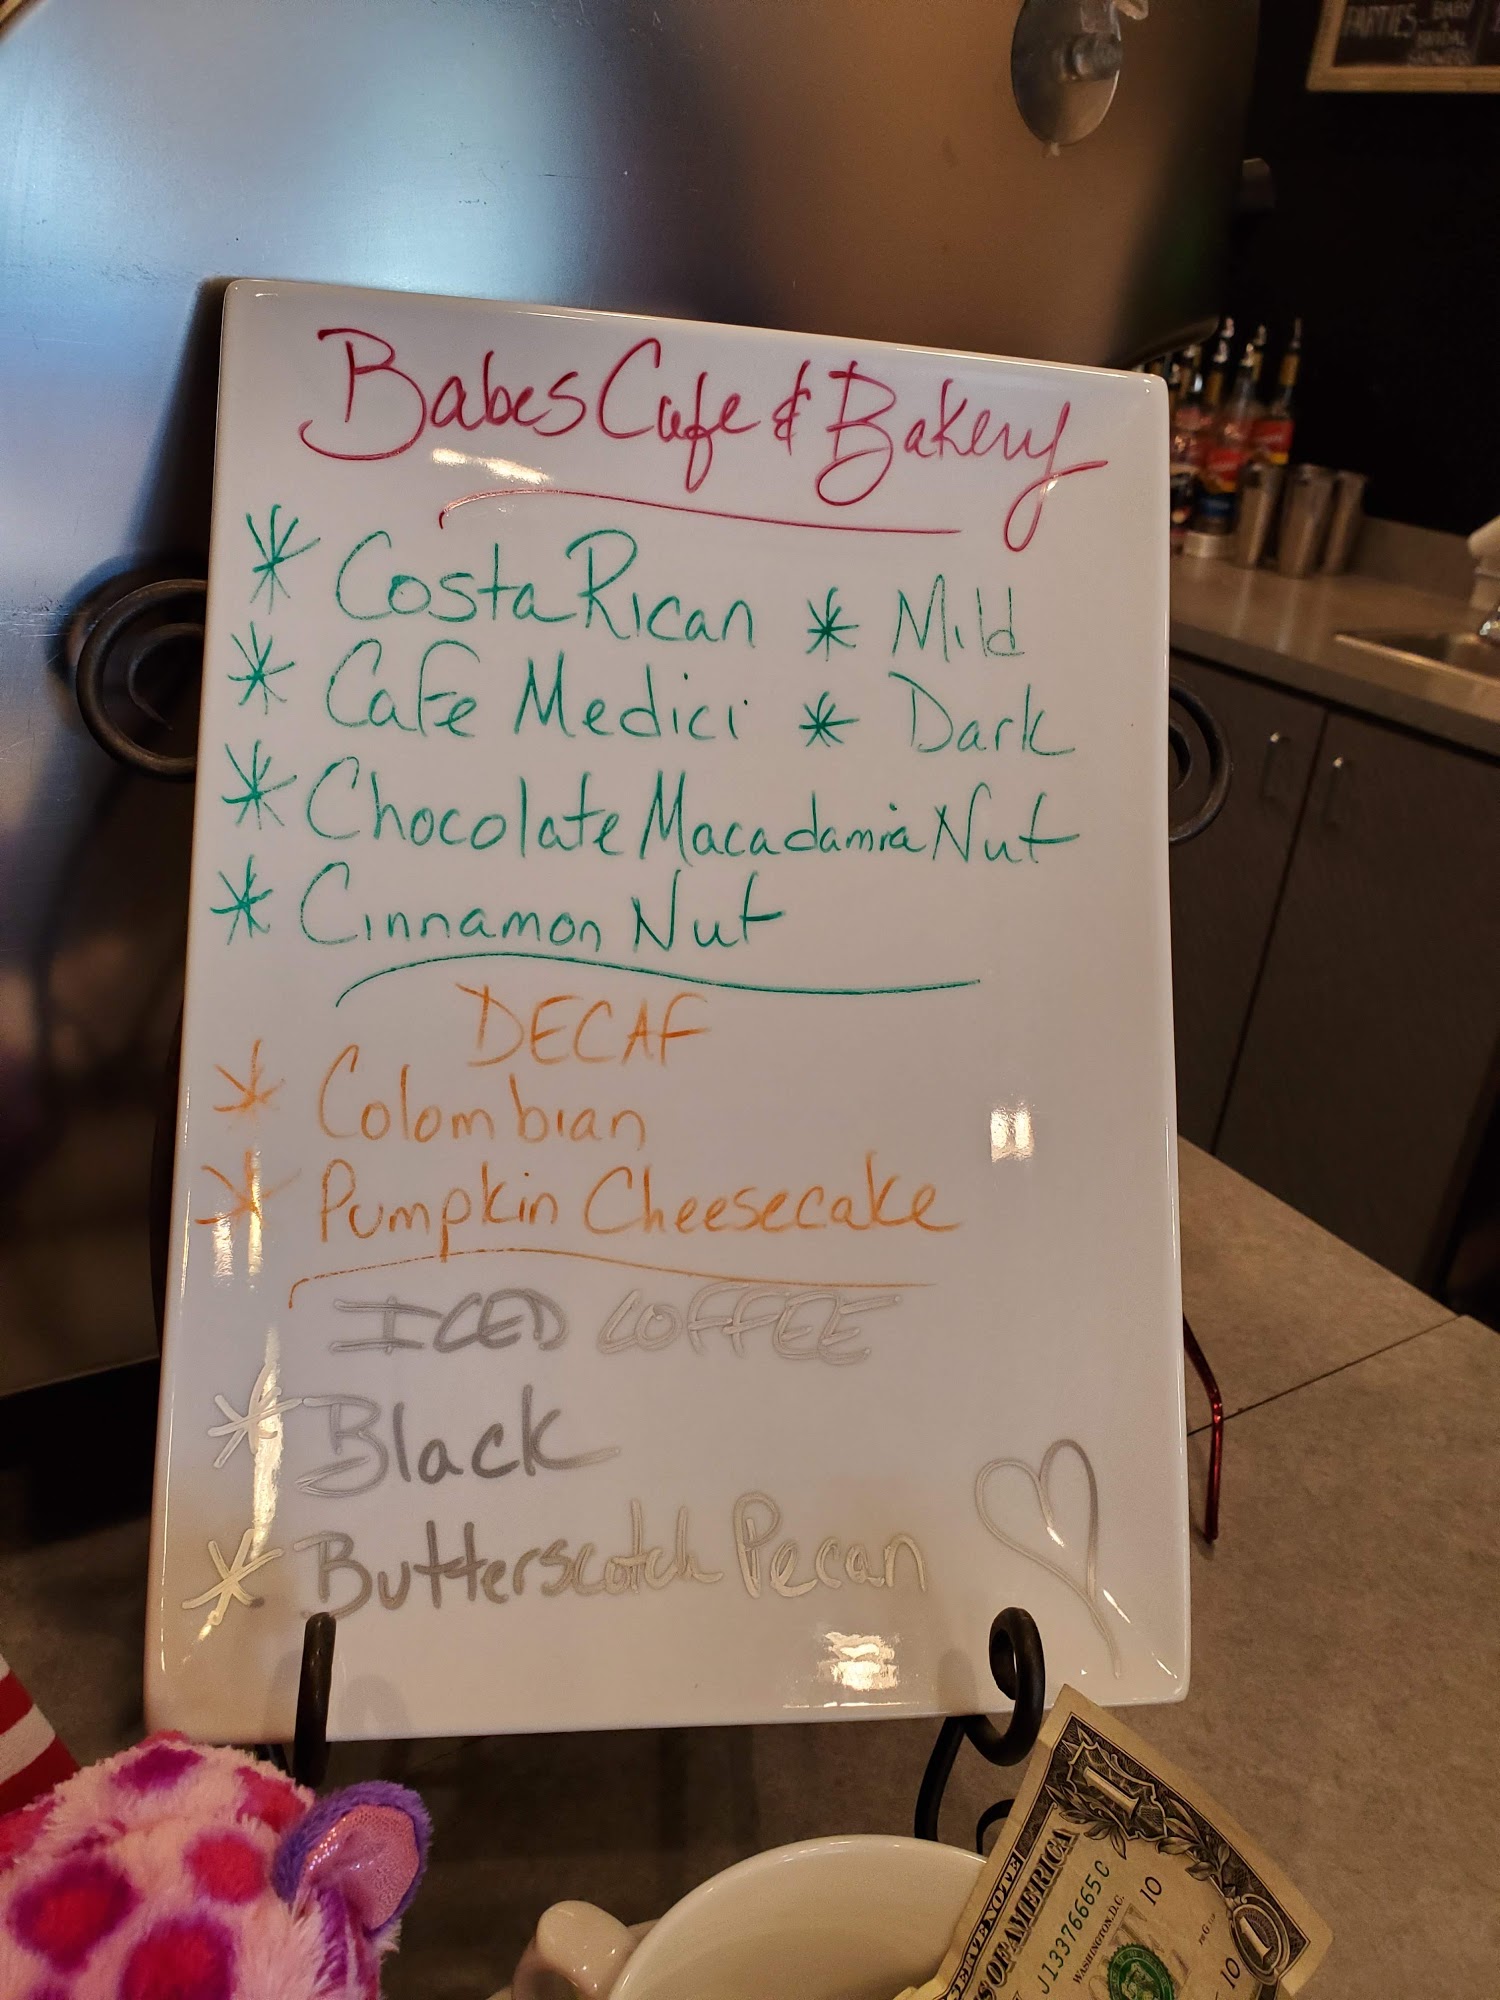 PARTIES
BABY
&
BRIDAL
SHOWERS
Babes Cafe & Bakery
* Costa Rican * Mild
* Cafe Medici * Dark
* Chocolate Macadamia Nut
* Cinnamon Nut
DECAF
* Colombian
* Pumpkin Cheesecake
ICED COFFEE
* Black
* Butterscotch Pecan
1
OF AMERICA
J13376665C
WASHINGTON, D.C.
10
10
1